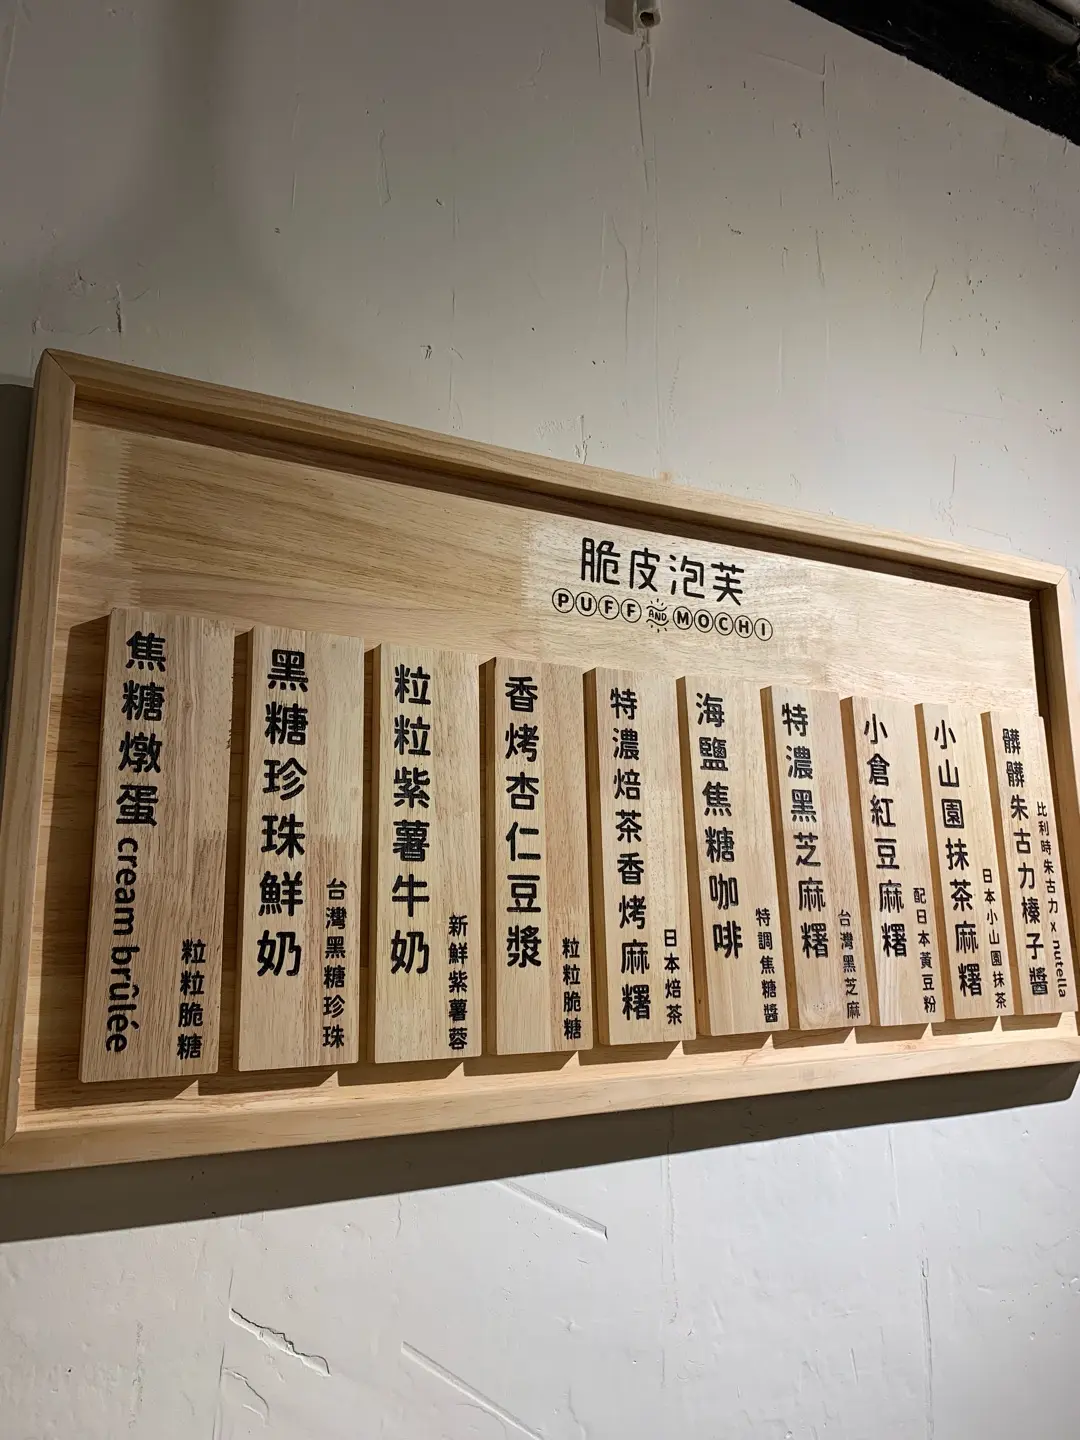 脆皮泡芙
PUFF AND MOCHI
髒髒朱古力榛子醬
比利時朱古力 x nutella
小山園抹茶麻糬
日本小山園抹茶
小倉紅豆麻糬
配日本黃豆粉
特濃黑芝麻糬
台灣黑芝麻
海鹽焦糖咖啡
特調焦糖醬
特濃焙茶香烤麻糬
日本焙茶
香烤杏仁豆漿
粒粒脆糖
粒粒紫薯牛奶
新鮮紫薯蓉
黑糖珍珠鮮奶
台灣黑糖珍珠
焦糖燉蛋 cream brûlée
粒粒脆糖